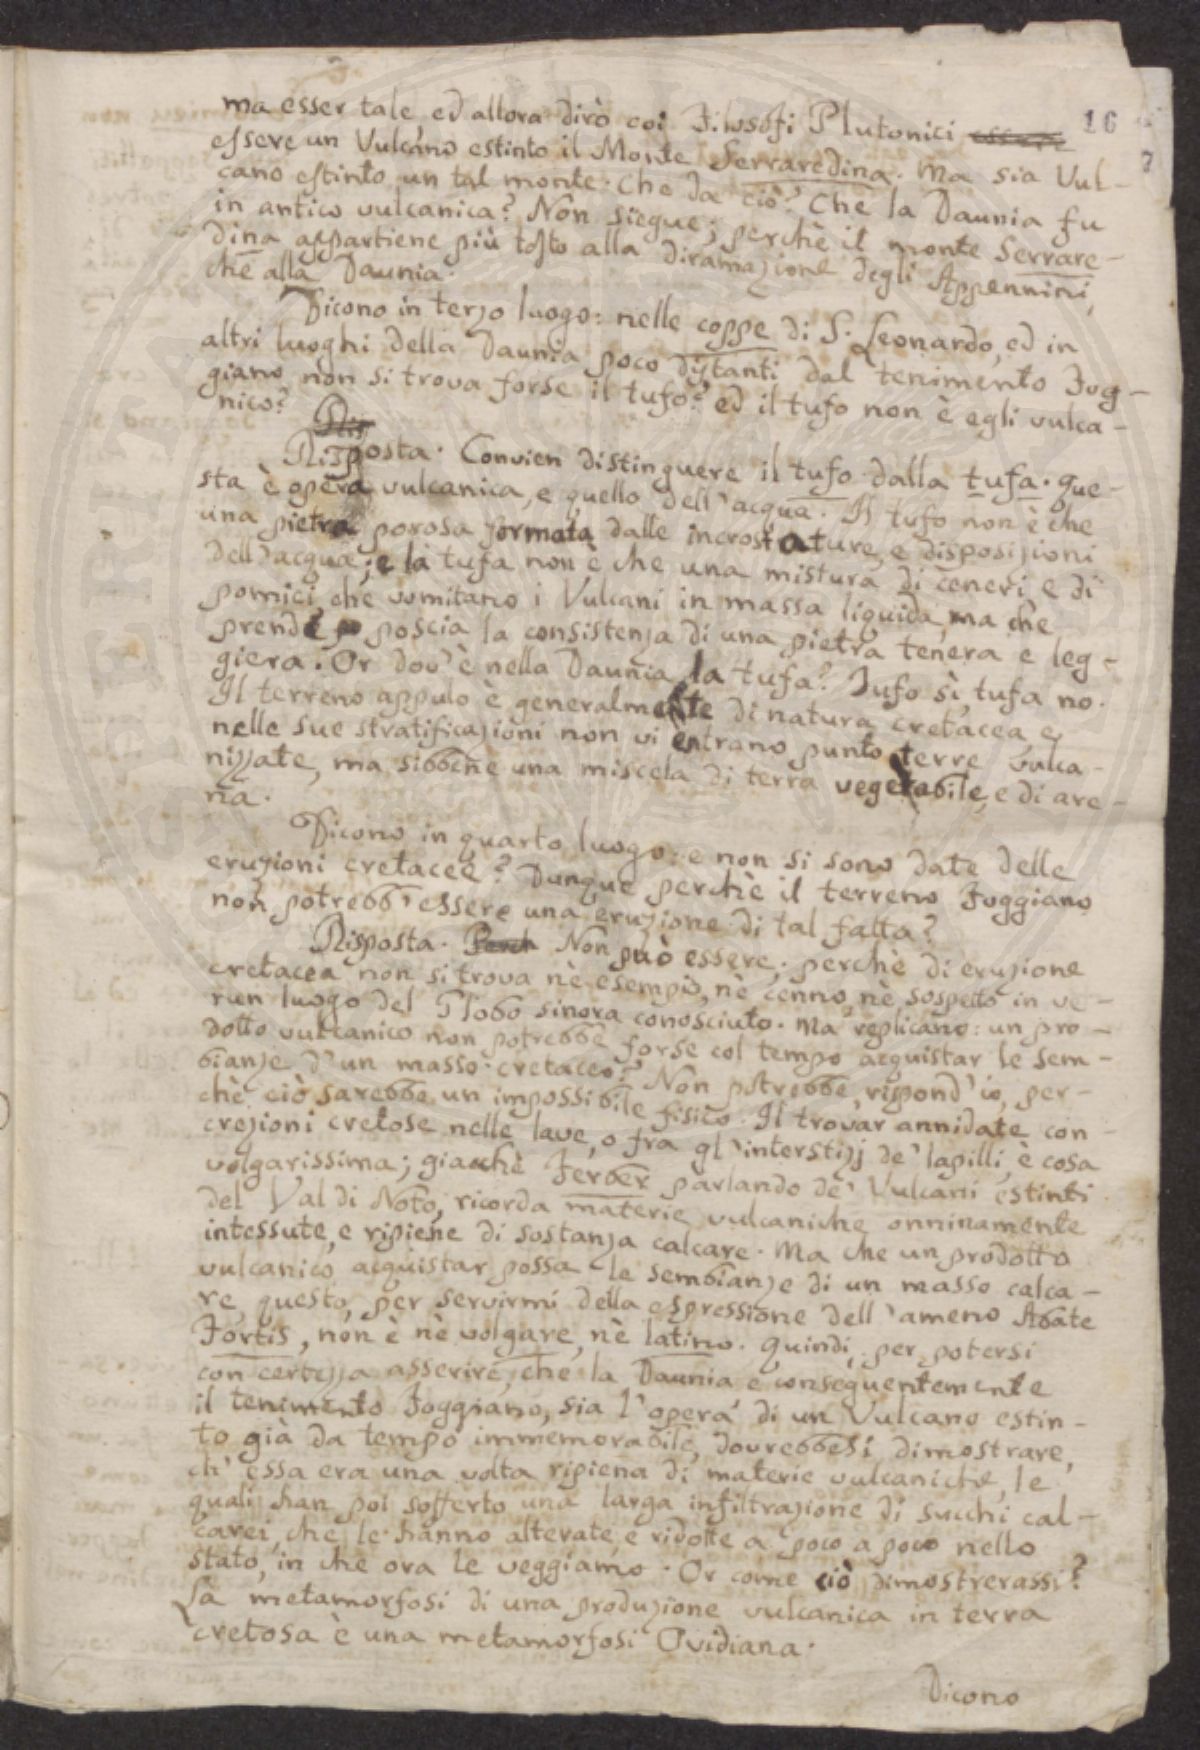 16
7
ma esser tale, ed allora dirò coi Filosofi Plutonici essere
essere un Vulcano estinto il Monte Serraredina. Ma sia Vul-
cano estinto un tal monte. Che da ciò? Che la Daunia fu
in antico vulcanica? Non siegue; perchè il monte Serrare-
dina appartiene più tosto alla diramazione degli Appennini,
che alla Daunia.
Dicono in terzo luogo: nelle coppe di S. Leonardo, ed in
altri luoghi della Daunia poco distanti dal tenimento Fog-
giano non si trova forse il tufo? ed il tufo non è egli vulca-
nico?
Ris
Risposta. Convien distinguere il tufo dalla tufa. Que-
sta è opera vulcanica, e quello dell'acqua. Il tufo non è che
una pietra porosa formata dalle incrostature, e disposizioni
dell'acqua; e la tufa non è che una mistura di ceneri, e di
pomici, che vomitano i Vulcani in massa liquida, ma che
prende poscia la consistenza di una pietra tenera e leg-
giera. Or dov'è nella Daunia la tufa? Tufo sì, tufa no.
Il terreno appulo è generalmente di natura cretacea e
nelle sue stratificazioni non vi entrano punto terre vulca-
nizzate, ma sibbene una miscela di terra vegetabile, e di are-
na.
Dicono in quarto luogo: e non si sono date delle
eruzioni cretacee? Dunque perchè il terreno Foggiano
non potrebb'essere una eruzione di tal fatta?
Risposta. Perch Non può essere; perchè di eruzione
cretacea non si trova nè esempio, nè cenno, nè sospetto in ve-
run luogo del Globo sinora conosciuto. Ma replicano: un pro-
dotto vulcanico non potrebbe forse col tempo acquistar le sem-
bianze d'un masso cretaceo? Non potrebbe, rispond'io, per-
chè ciò sarebbe un impossibile fisico. Il trovar annidate con-
crezioni cretose nelle lave, o fra gl'interstizj de' lapilli, è cosa
volgarissima; giacchè Ferber parlando de' Vulcani estinti
del Val di Noto, ricorda materie vulcaniche onninamente
intessute, e ripiene di sostanza calcare. Ma che un prodotto
vulcanico acquistar possa le sembianze di un masso calca-
re, questo, per servirmi della espressione dell'ameno Abate
Fortis, non è nè volgare, nè latino. Quindi, per potersi
con certezza asserire, che la Daunia e conseguentemente
il tenimento Foggiano, sia l'opera di un Vulcano estin-
to già da tempo immemorabile, dovrebbesi dimostrare,
ch'essa era una volta ripiena di materie vulcaniche, le
quali han poi sofferto una larga infiltrazione di succhi cal-
carei, che le hanno alterate, e ridotte a poco a poco nello
stato, in che ora le veggiamo. Or come ciò dimostrerassi?
La metamorfosi di una produzione vulcanica in terra
cretosa è una metamorfosi Ovidiana.
Dicono